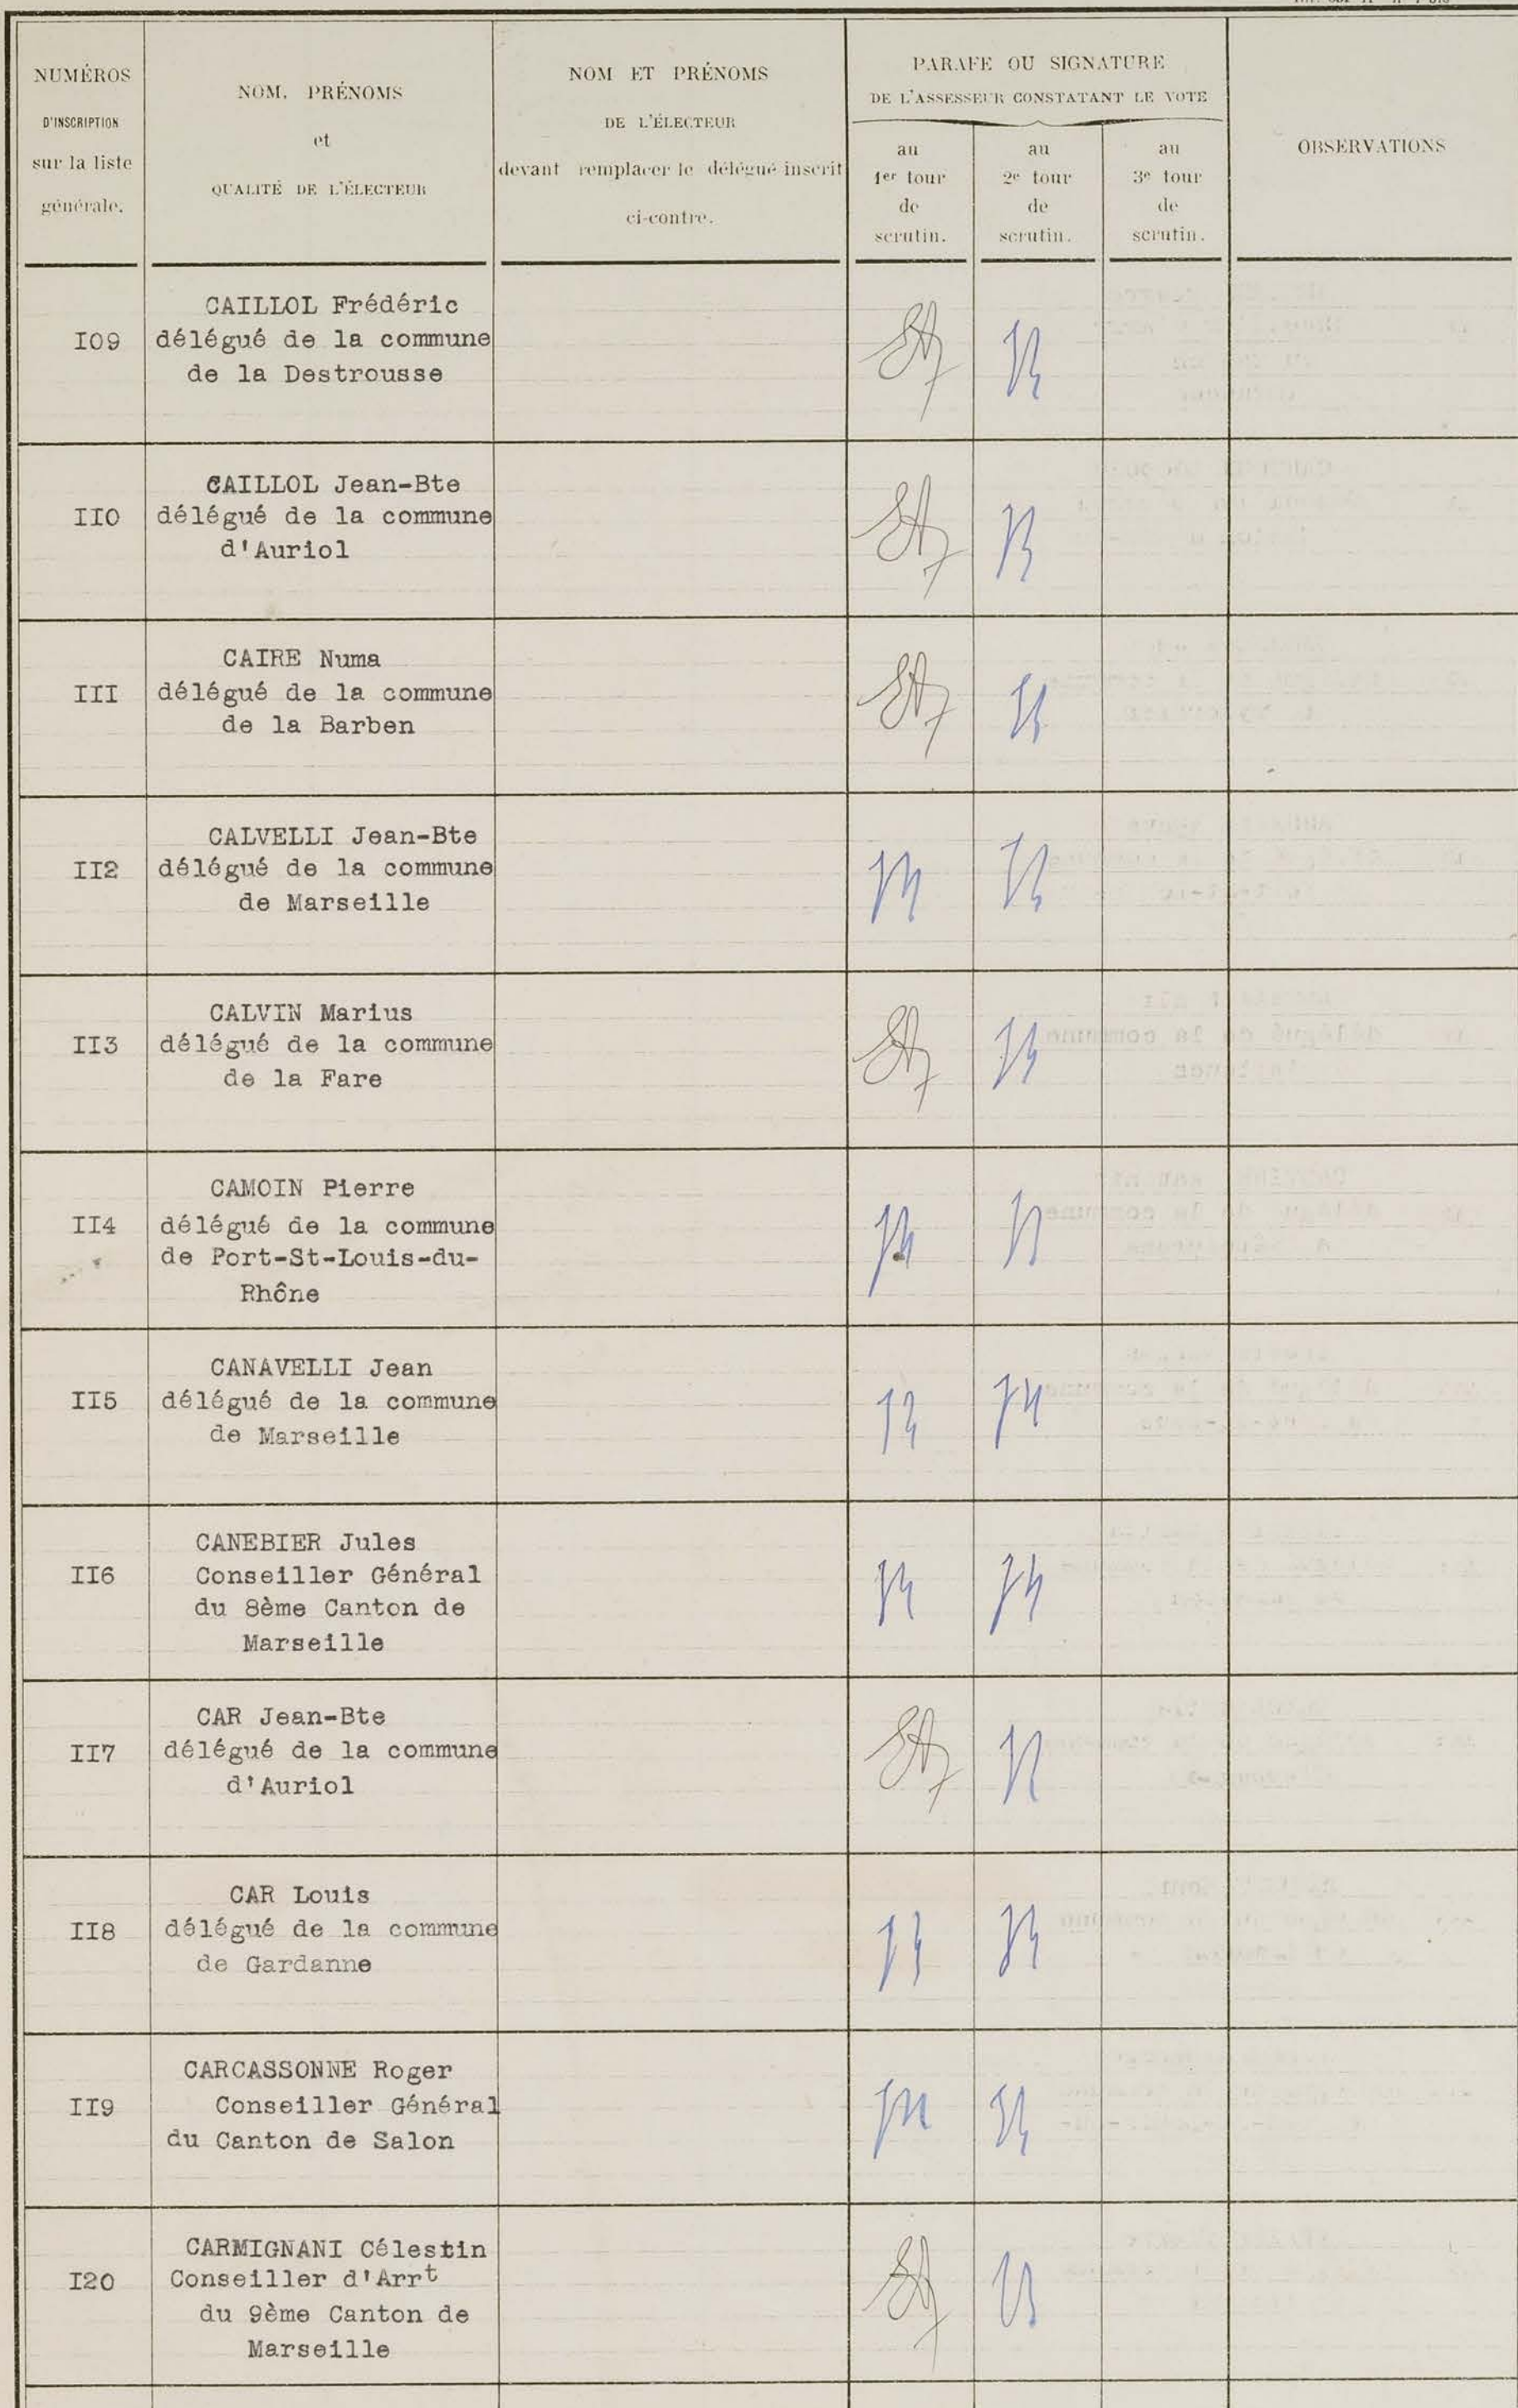 NUMÉROS
D'INSCRIPTION
sur la liste
générale.
NOM, PRÉNOMS
et
QUALITÉ DE L'ÉLECTEUR
NOM ET PRÉNOMS
DE L'ÉLECTEUR
devant remplacer le délégué inscrit
ci-contre.
PARAFE OU SIGNATURE
DE L'ASSESSEUR CONSTATANT LE VOTE
au
1er tour
de
scrutin.
au
2e tour
de
scrutin.
au
3e tour
de
scrutin.
OBSERVATIONS
I09
CAILLOL Frédéric
délégué de la commune
de la Destrousse
II0
CAILLOL Jean-Bte
délégué de la commune
d'Auriol
III
CAIRE Numa
délégué de la commune
de la Barben
II2
CALVELLI Jean-Bte
délégué de la commune
de Marseille
II3
CALVIN Marius
délégué de la commune
de la Fare
II4
CAMOIN Pierre
délégué de la commune
de Port-St-Louis-du-
Rhône
II5
CANAVELLI Jean
délégué de la commune
de Marseille
II6
CANEBIER Jules
Conseiller Général
du 8ème Canton de
Marseille
II7
CAR Jean-Bte
délégué de la commune
d'Auriol
II8
CAR Louis
délégué de la commune
de Gardanne
II9
CARCASSONNE Roger
Conseiller Général
du Canton de Salon
I20
CARMIGNANI Célestin
Conseiller d'Arrt
du 9ème Canton de
Marseille